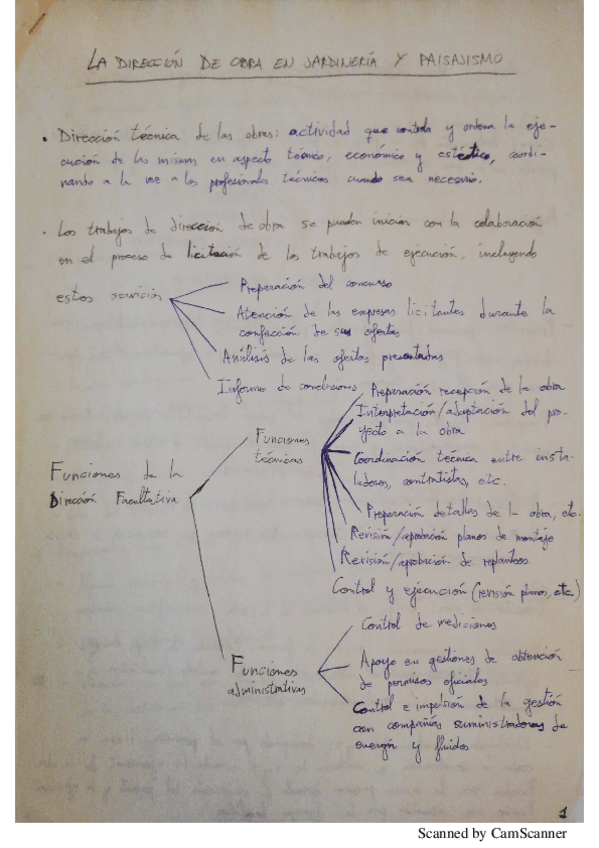 LA DIRECCIÓN DE OBRA EN JARDINERÍA Y PAISAJISMO
• Dirección técnica de las obras: actividad que controla y ordena la eje-
cución de las mismas en aspecto técnico, económico y estético, coordi-
nando a la vez a los profesionales técnicos cuando sea necesario.
• Los trabajos de dirección de obra se pueden iniciar con la colaboración
en el proceso de licitación de los trabajos de ejecución, incluyendo
estos servicios
Preparación del concurso
Atención de las empresas licitantes durante la
confección de sus ofertas
Análisis de las ofertas presentadas
Informe de conclusiones
Funciones de la
Dirección Facultativa
Funciones
técnicas
Preparación recepción de la obra
Interpretación/adaptación del pro-
yecto a la obra
Coordinación técnica entre insta-
ladores, contratistas, etc.
Preparación detalles de la obra, etc.
Revisión/aprobación planos de montaje
Revisión/aprobación de replanteos
Control y ejecución (revisión planos, etc)
Funciones
administrativas
Control de mediciones
Apoyo en gestiones de obtención
de permisos oficiales
Control e impulsión de la gestión
con compañías suministradoras de
energía y fluidos
1
Scanned by CamScanner